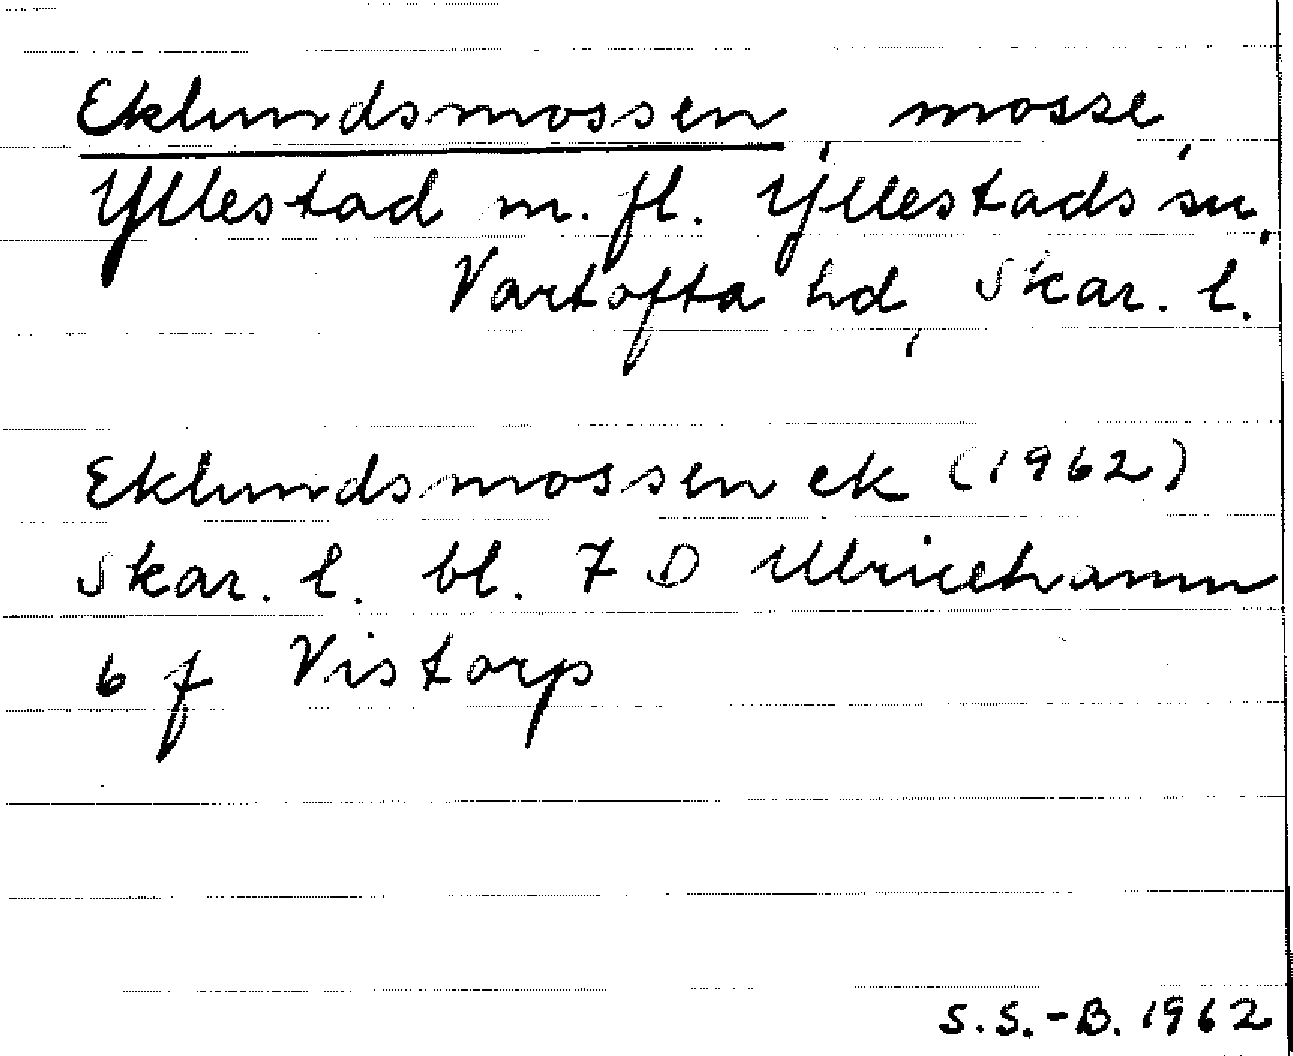 Eklundsmossen, mosse,
Yllestad m. fl. Yllestads sn,
Vartofta hd, Skar. l.
Eklundsmossen ek (1962)
Skar. l. bl. 7 D Ulricehamn
6 f Vistorp
S.S.-B. 1962